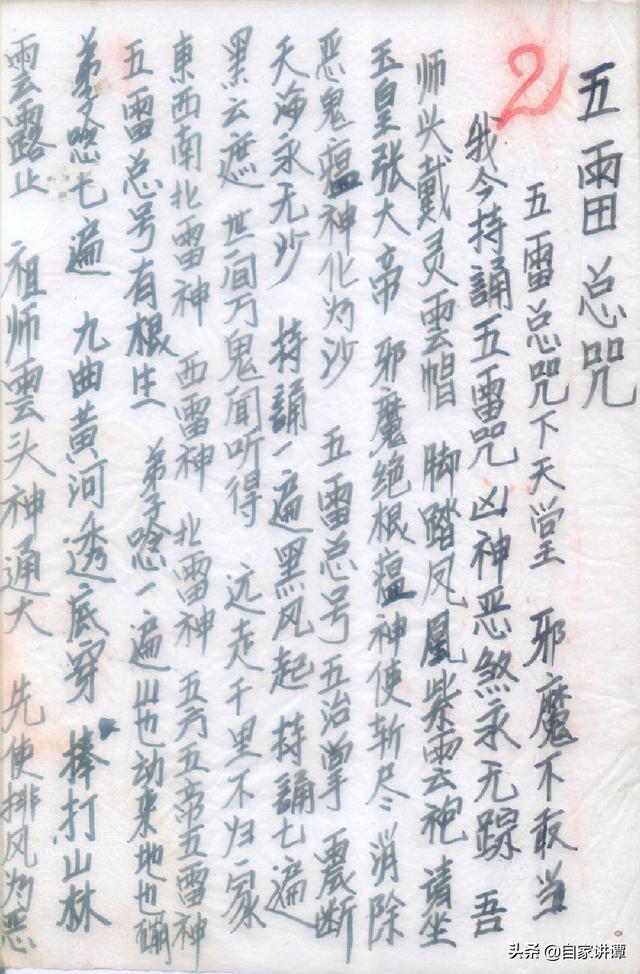 五雷总咒
2
五雷总咒下天堂 邪魔不敢当
我今持誦五雷咒 凶神恶煞永无踪 吾
师头戴灵雲帽 脚踏凤凰紫雲袍 请坐
玉皇张大帝 邪魔绝根瘟神使斩尽 消除
恶鬼瘟神化为沙 五雷总号五治掌 震断
天海永无沙 持誦一遍黑风起 持誦七遍
黑云遮 世间万鬼闻听得 远走千里不归家
東西南北雷神 西雷神 北雷神 五方五帝五雷神
五雷总号有根生 弟子唸一遍山也动来地也
弟子唸七遍 九曲黄河透底穿 棒打山林
雲露止 祖师雲头神通大 先使排风为恶
头条 @自家讲谭